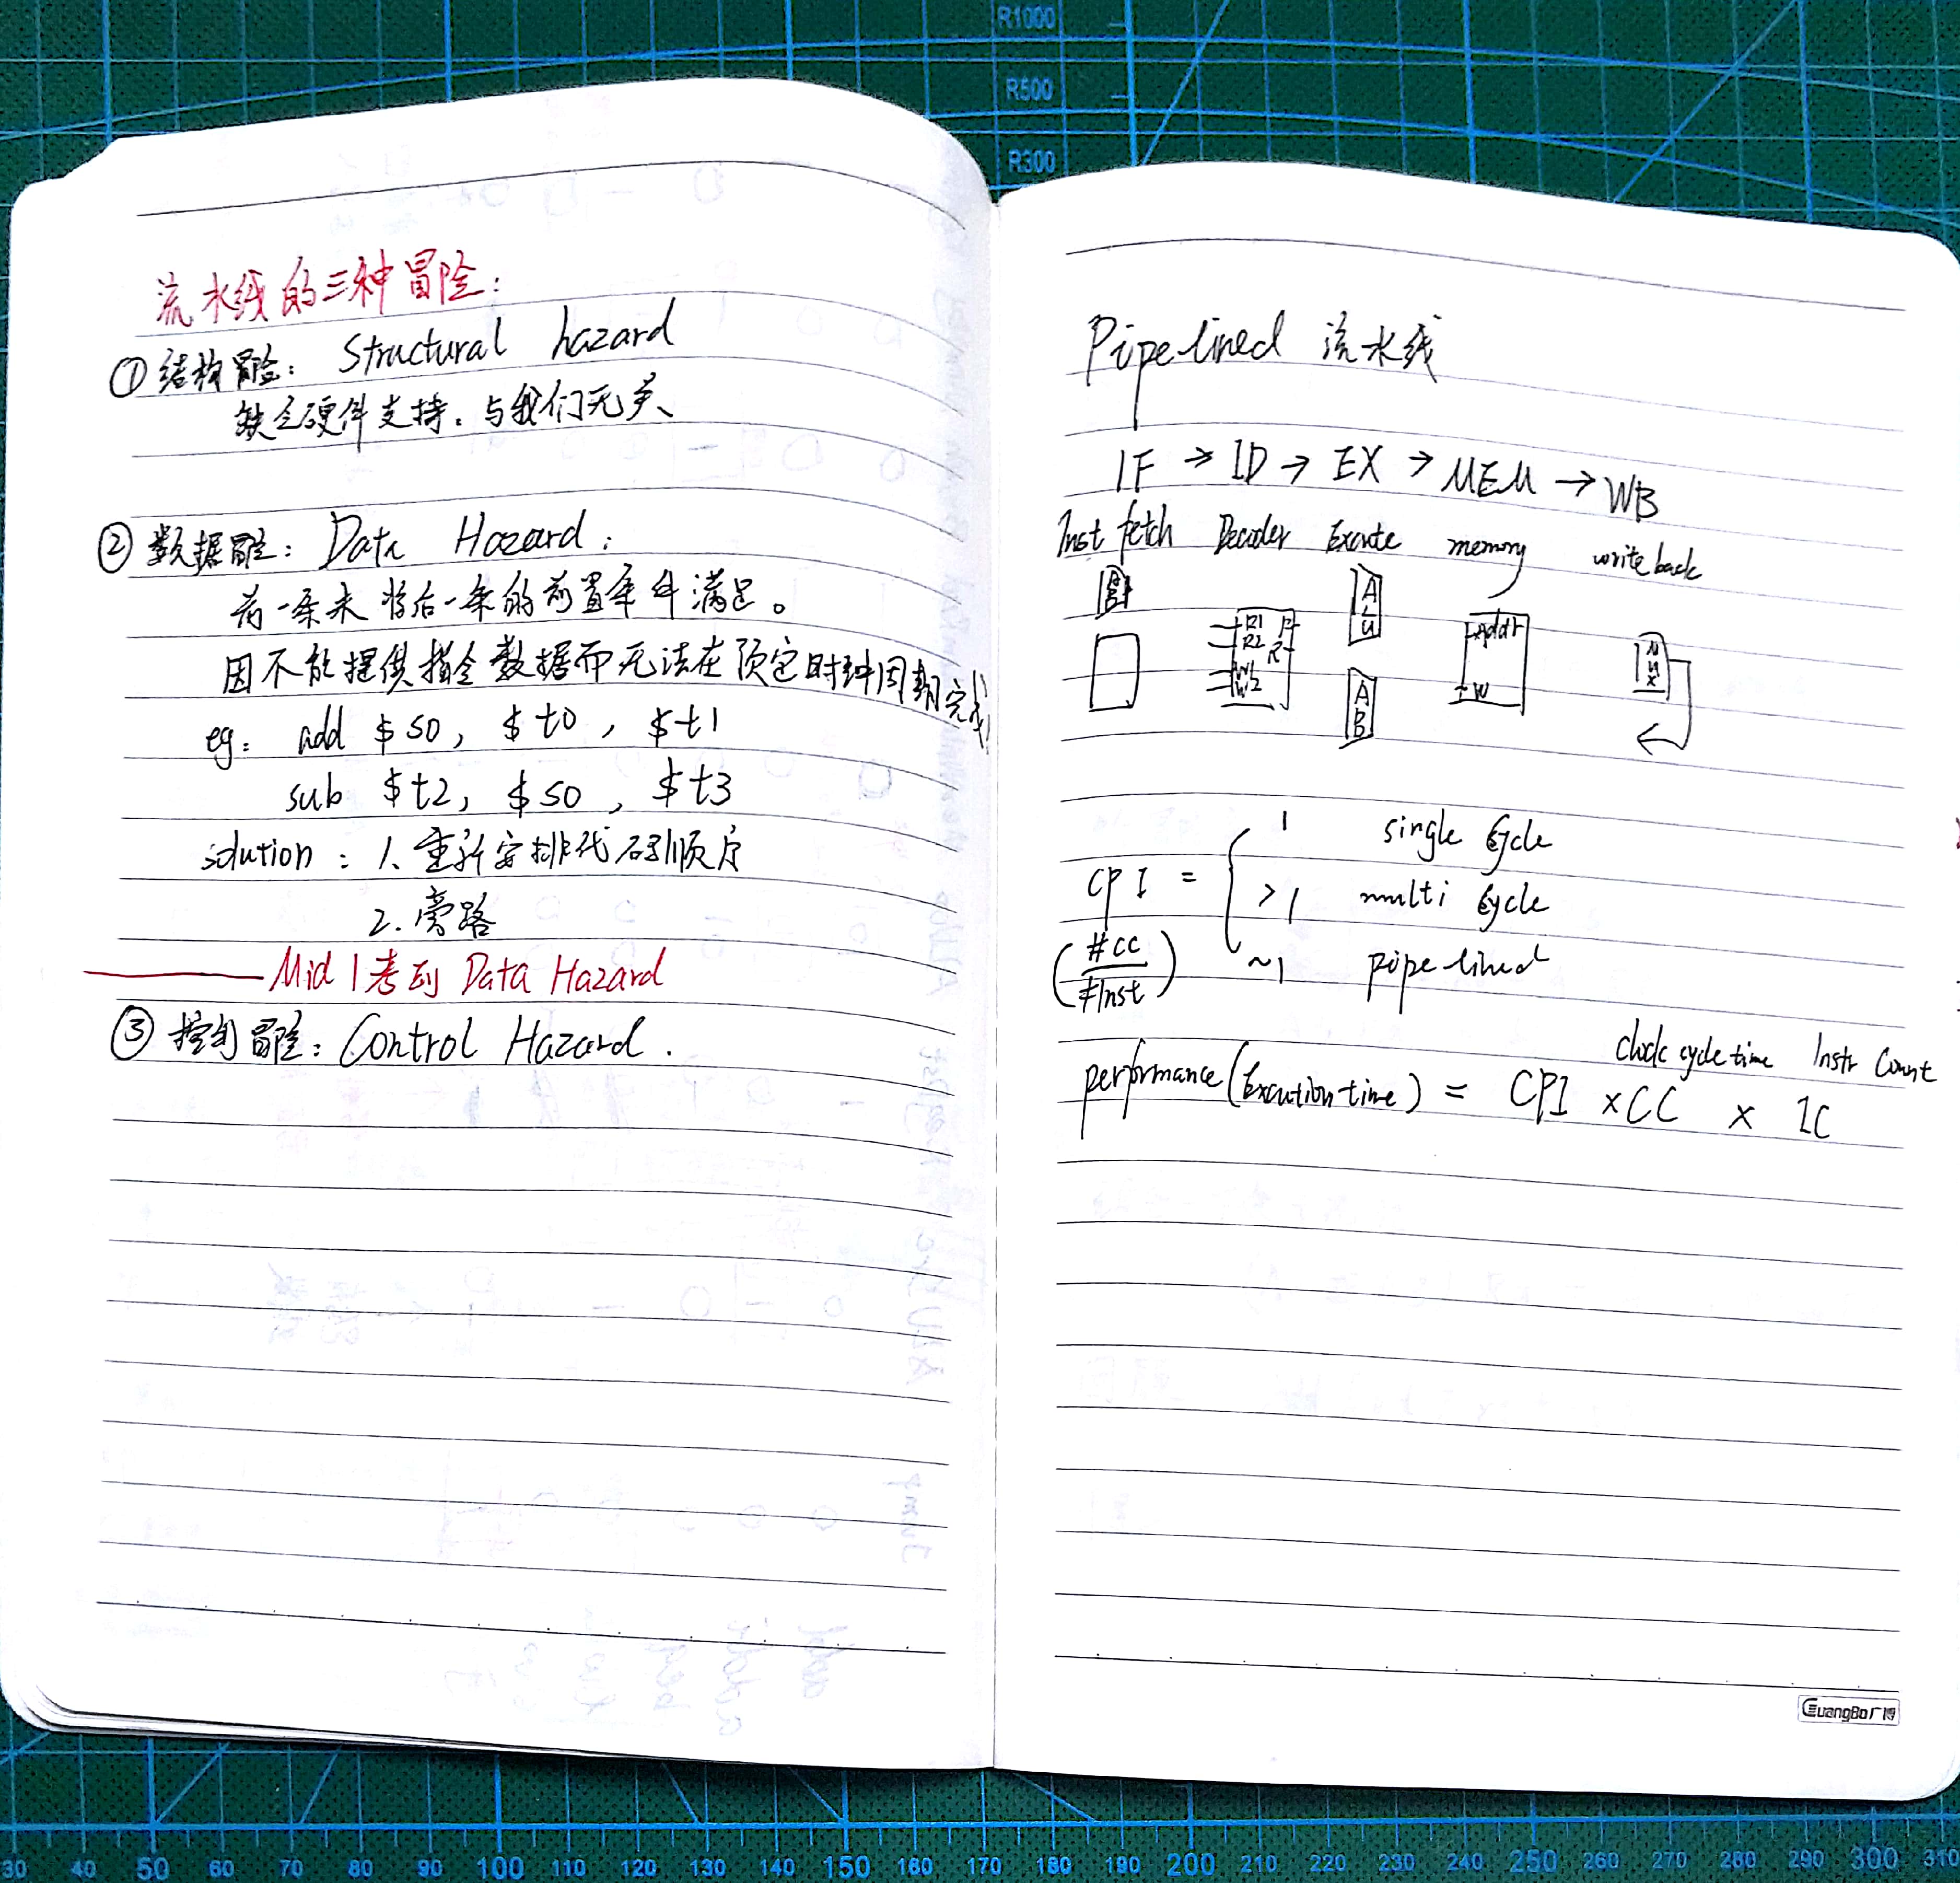 流水线的三种冒险：
①结构冒险： Structural hazard
缺乏硬件支持．与我们无关、
②数据冒险： Data Hazard：
前一条未将后一条的前置条件满足。
因不能提供指令数据而无法在预定时钟周期完成
eg： add $s0, $t0, $t1
sub $t2, $s0, $t3
solution： 1、重新安排代码顺序
2.旁路
Mid 1考到 Data Hazard
③控制冒险：Control Hazard.
Pipelined 流水线
IF → ID → EX → MEM → WB
Inst fetch Decoder Excute memory write back
R1 R
R2 R
W1
W2
ALU
AB
Addr
W
Mux
CPI = { 1 single Cycle
>1 multi Cycle
~1 pipelined
(#CC/#Inst)
clock cycle time Instr Count
performance(Excution time) = CPI ×CC × IC
GuangBo广博
R1000
R500
R300
30 40 50 60 70 80 90 100 110 120 130 140 150 160 170 180 190 200 210 220 230 240 250 260 270 280 290 300 310